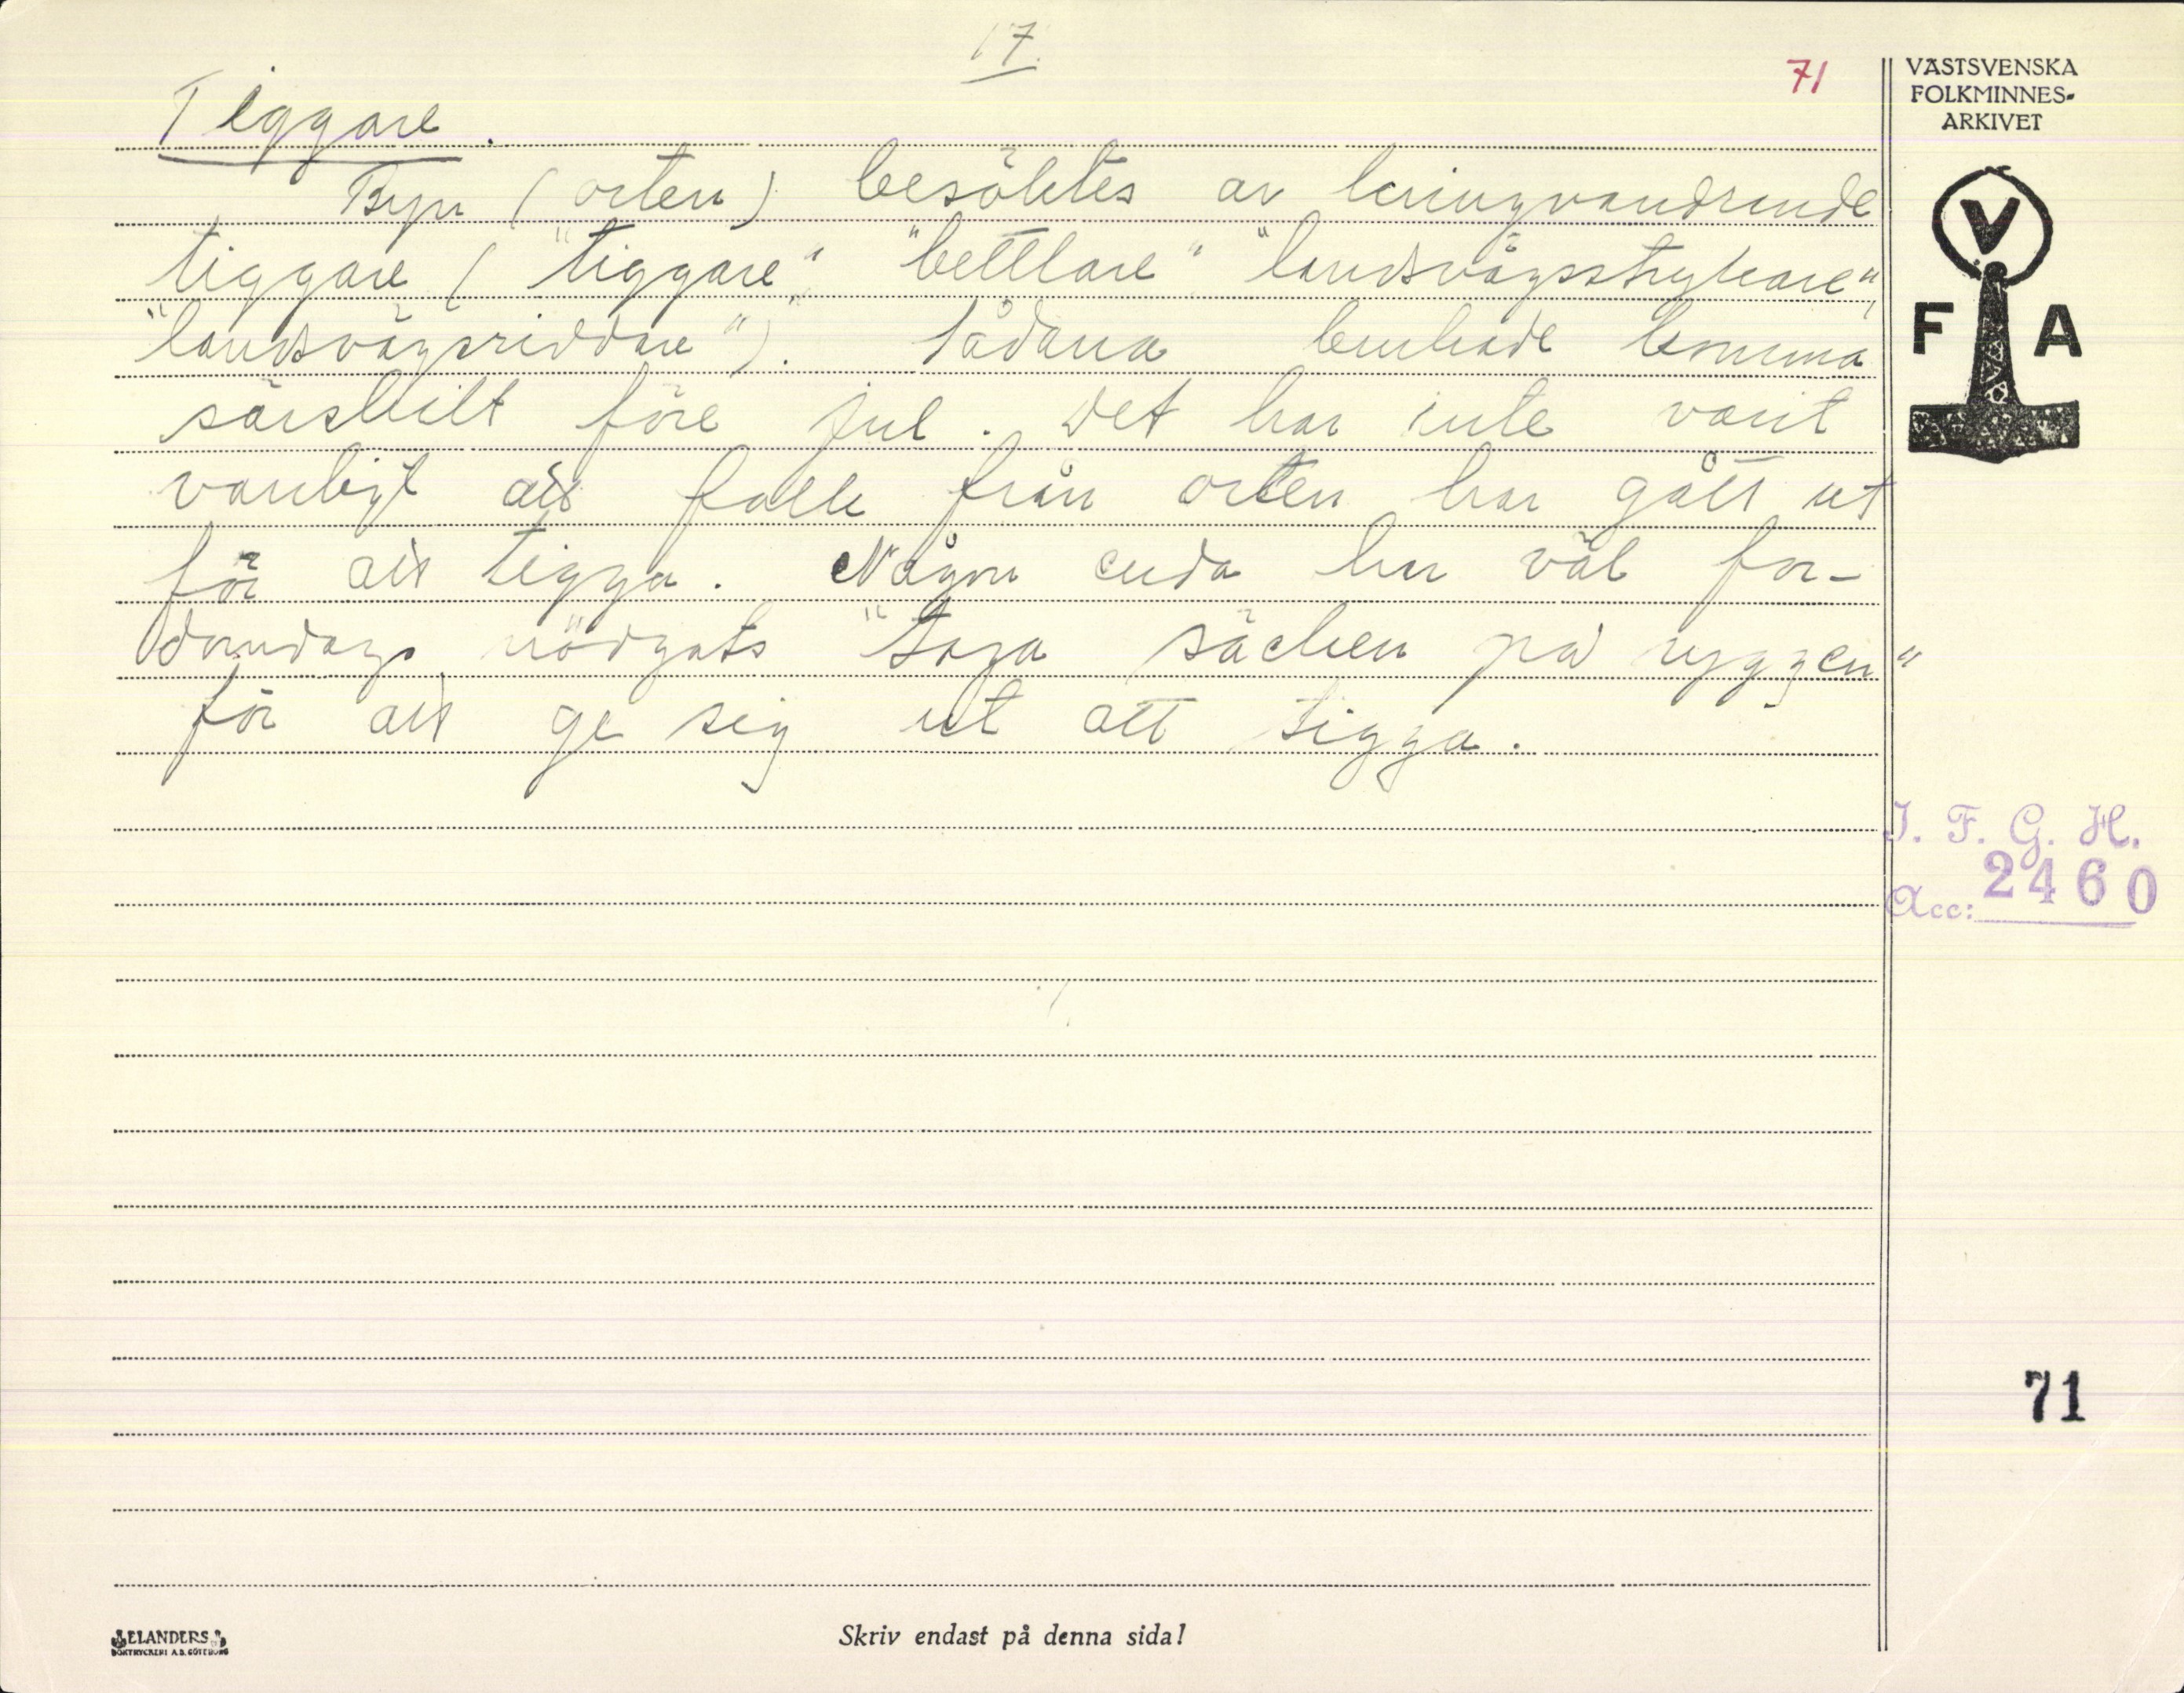 17.
71
VÄSTSVENSKA
FOLKMINNES-
ARKIVET
Tiggare.
Byn (orten) besöktes av kringvandrende
tiggare ("tiggare", "bettlare" "landsvägsstrykare",
"landsvägsriddare"). Sådana brukade komma
särskilt före jul. Det har inte varit
vanligt att folk från orten har gått ut
för att tigga. Någon enda har väl for-
domdags nödgats "taga säcken på ryggen"
för att ge sig ut att tigga.
V
F A
I. F. G. H.
Acc: 2460
71
ELANDERS
BOKTRYCKERI A.B. GÖTEBORG
Skriv endast på denna sida!